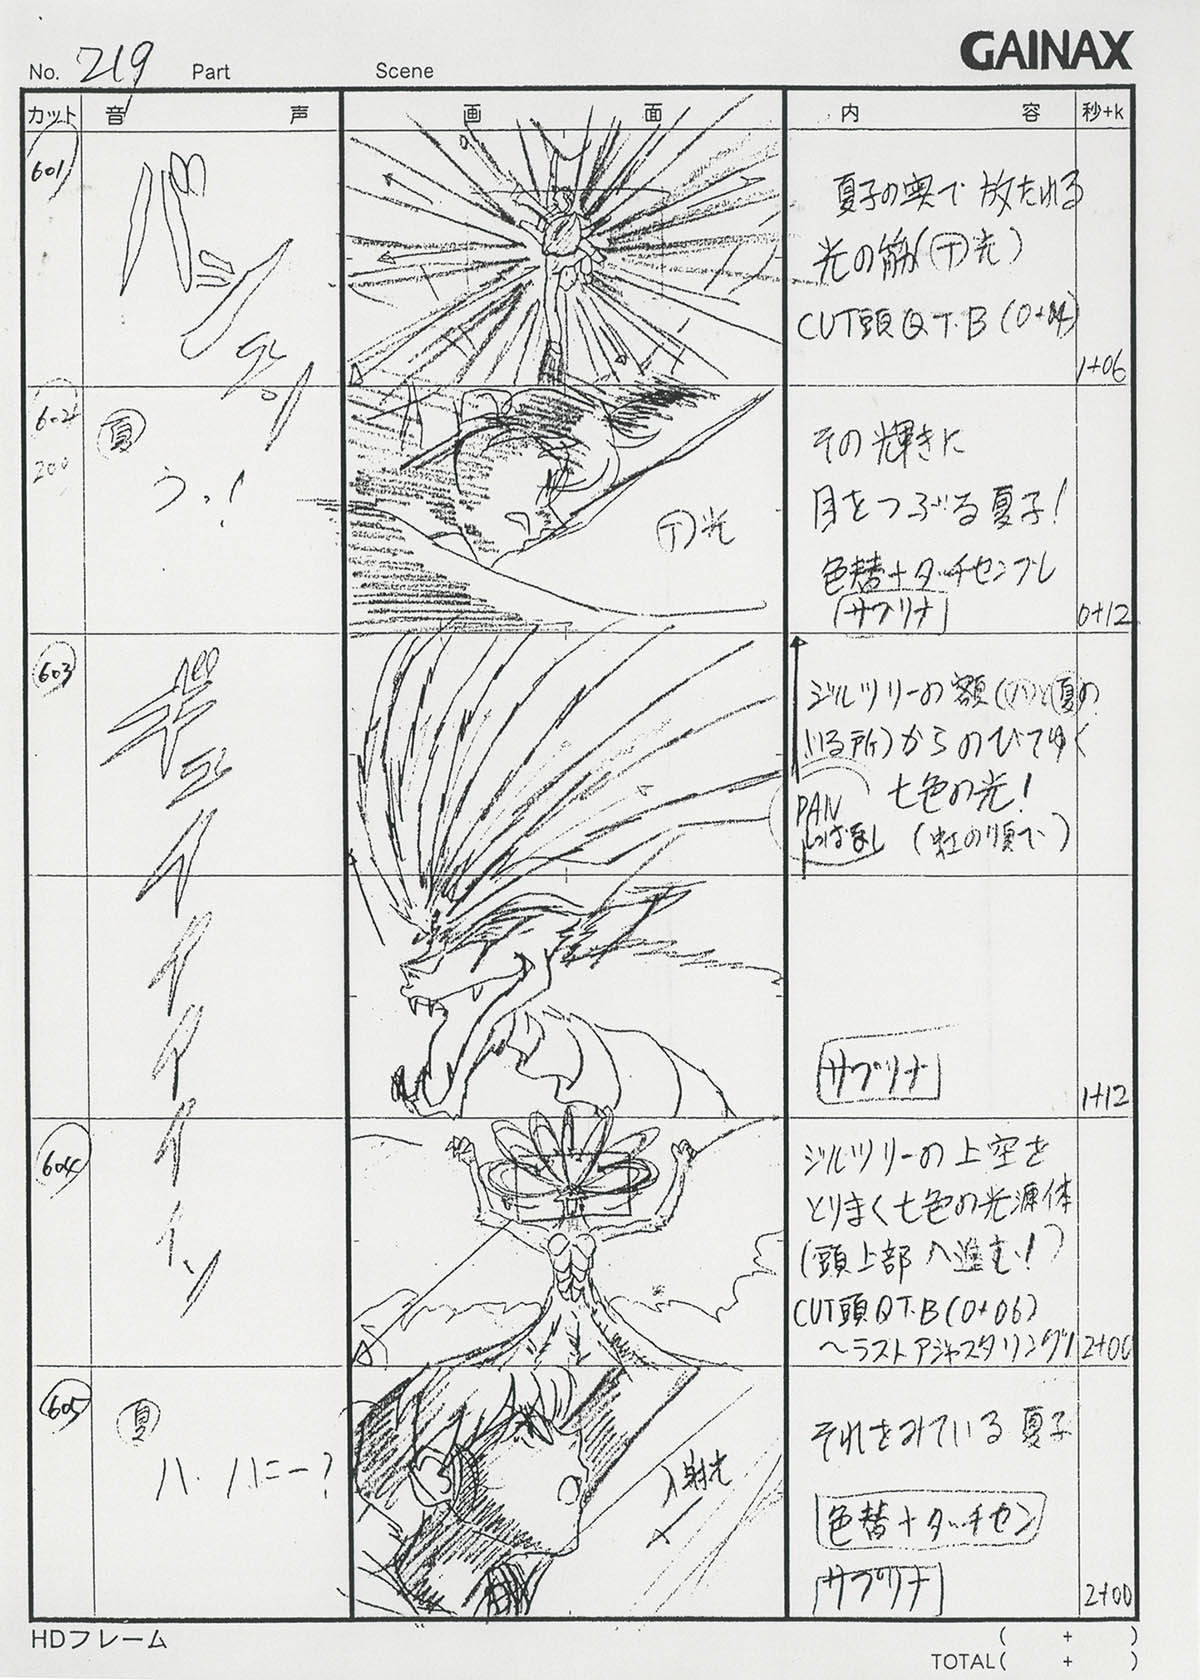 GAINAX
No. 219 Part Scene
カット 音 声 画 面 内 容 秒+k
601
バーン
夏子の奥で 放たれる
光の筋(T光)
CUT頭 Q T.B (0+04)
1+06
602
200
夏
うっ!
T光
その輝きに
目をつぶる夏子!
色替+タッチセンブレ
サプリナ
0+12
603
ギュイイイイイン
ジルツリーの額(ハハと夏の
いる所)からのびてゆく
七色の光!
(虹の順で)
PAN
しっぱなし
サプリナ
1+12
604
ジルツリーの上空を
とりまく七色の光源体
(頭上部へ進む!)
CUT頭 Q T.B (0+06)
〜ラスト アジャスタリング!
2+00
605
夏
ハ、ハニー?
入射光
それをみている夏子
色替+タッチセン
サプリナ
2+00
HDフレーム
( + )
TOTAL( + )